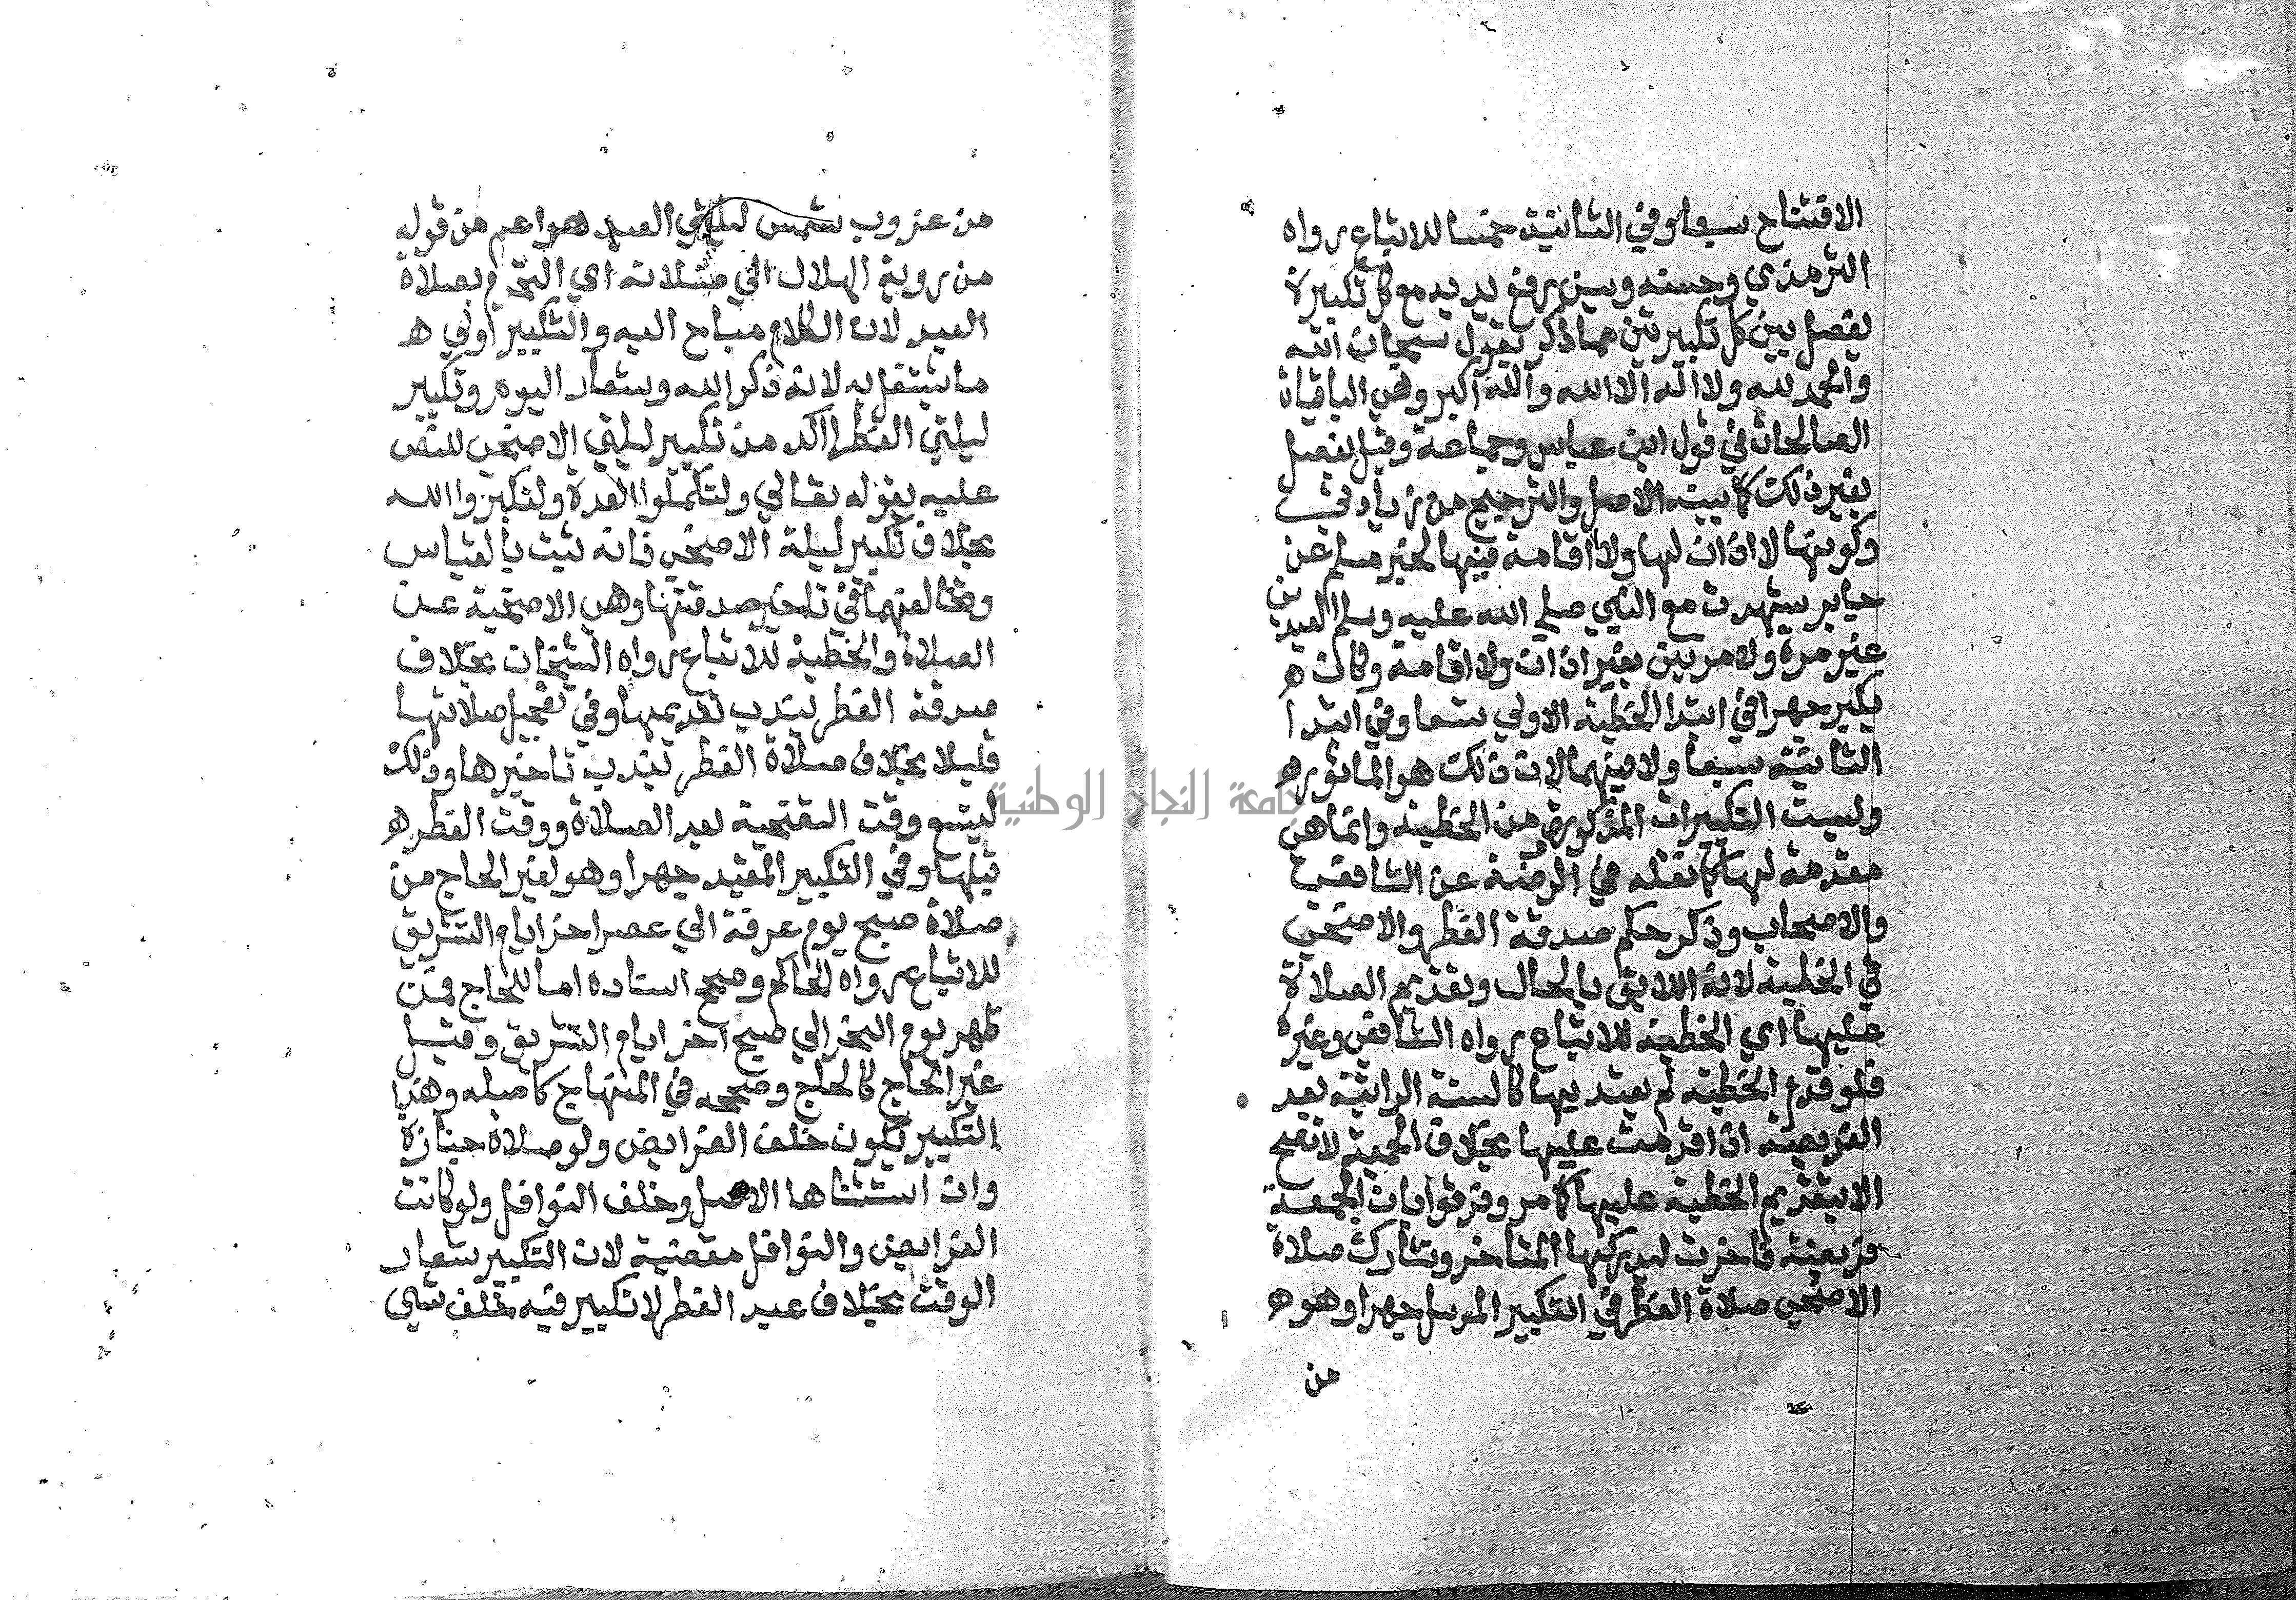 الافتتاح سبعا وفي الثانية خمسا للاتباع رواه
الترمذي وحسنه وسن رفع يديه مع كل تكبيرة
يفصل بين كل تكبيرتين مما ذكر بقول سبحان الله
والحمد لله ولا اله الا الله والله اكبر وهي الباقيات
الصالحات في قول ابن عباس وجماعة وقيل يفصل
بغير ذلك كما بينه الاصل والترجيح من زيادتي
وكونها لا اذان لها ولا اقامة فيها لخبر مسلم عن
جابر شهدت مع النبي صلي الله عليه وسلم العيدين
غير مرة ولا مرتين بغير اذان ولا اقامة وكان ه
يكبر جهرا في ابتدا الخطبة الاولي تسعا وفي ابتدا
الثانية سبعا ولا بينهما لان ذلك هو الماثور ه
وليست التكبيرات المذكورة من الخطبة وانما هي
مقدمة لها كما نقله في الروضة عن الشافعي
والاصحاب وذكر حكم صدقة الفطر والاضحي
في الخطبة لانه اللايق بالحال وتقديم الصلاة
عليها اي الخطبة للاتباع رواه الشافعي وغيره
فلو قدم الخطبة لم يعتد بها كالسنة الراتبة بعد
الفريضة اذا قدمت عليها بخلاف الجمعة لا تصح
الا بتقديم الخطبة عليها كما مر وفرقوا بان الجمعة
فريضة فاخرت ليدركها المتاخر وتشارك صلاة
الاضحي صلاة الفطر في التكبير المرسل جهرا وهو ه
من
من غروب شمس ليلتي العيد هو اعم من قوله
من روية الهلال الي صلاته اي التحرم بصلاة
العيد لان الكلام مباح اليه والتكبير اولي ه
ما يشتغل به لانه ذكر الله وشعار اليوم وتكبير
ليلتي الفطر اكد من تكبير ليلتي الاضحي للنص
عليه بقوله تعالي ولتكملوا العدة ولتكبروا الله
بخلاف تكبير ليلة الاضحي فانه ثبت بالقياس
وتخالفهما في تاخير صدقتها وهي الاضحية عن
الصلاة والخطبة للاتباع رواه الشيخان بخلاف
صدقة الفطر يندب تقديمها وفي تعجيل صلاتها
قليلا بخلاف صلاة الفطر يندب تاخيرها وذلك
ليتسع وقت التضحية بعد الصلاة ووقت الفطر ه
قبلها وفي التكبير المقيد جهرا وهو لغير الحاج من
صلاة صبح يوم عرفة الي عصر اخر ايام التشريق
للاتباع رواه الحاكم وصحح اسناده اما للحاج فمن
ظهر يوم النحر الي صبح اخر ايام التشريق وقيل
غير الحاج كالحاج وصححه في المنهاج كاصله وهذا
التكبير يكون خلف الفرايض ولو صلاة جنازة
وان استثناها الاصل وخلف النوافل ولو كانت
الفرايض والنوافل مقضية لان التكبير شعار
الوقت بخلاف عيد الفطر لا تكبير فيه خلف شي
جامعة النجاح الوطنية